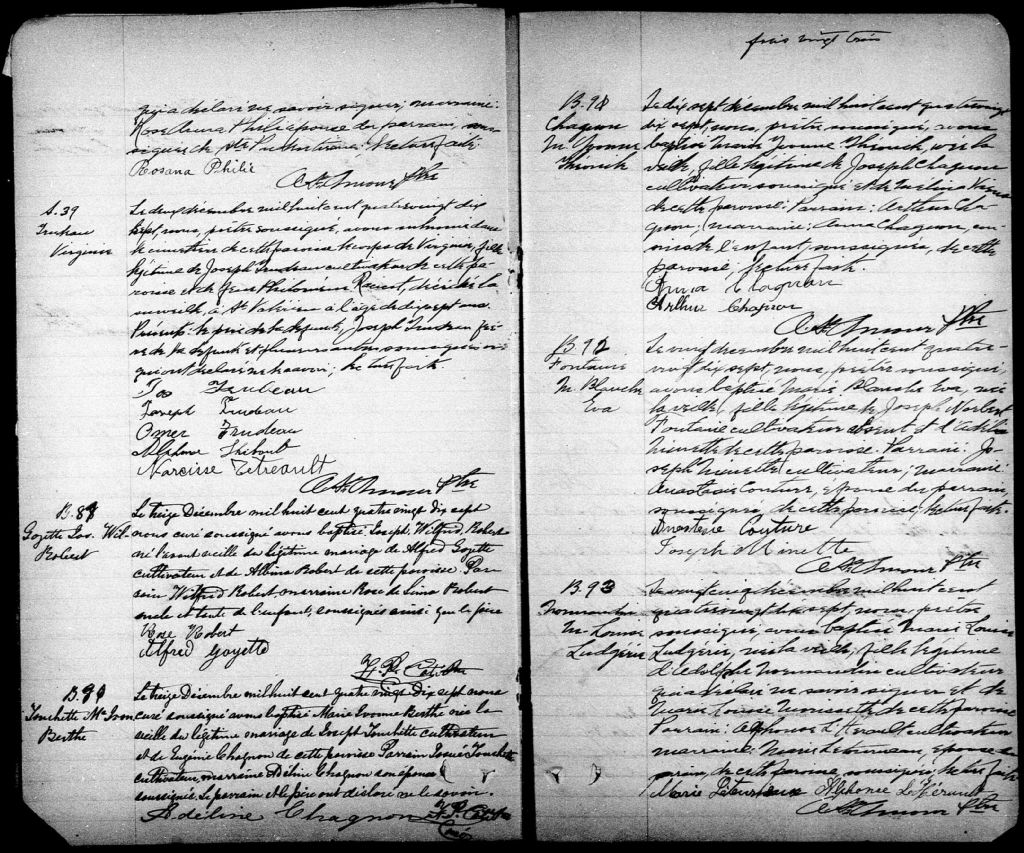 qui a déclaré ne savoir signer; marraine:
Rosanna Philie épouse du parrain,
Rosana Philie
A. St. Amour Ptre
S. 39
Trudeau
Virginie
Le deux décembre mil huit cent quatrevingt dix
sept, nous, prêtre soussigné, avons inhumé dans
le cimetière de cette paroisse le corps de Virginie, fille
légitime de Joseph Trudeau cultivateur de cette pa-
roisse et de Philomène décédée la
à l'âge de dix sept ans.
Présents: le père de la défunte, Joseph Trudeau frè-
re de la défunte et plusieurs autres soussignés
qui ont déclaré ne savoir; lecture faite
Jos Trudeau
Joseph Trudeau
Omer Trudeau
Alphonse Thibault
Narcisse Tetreault
A. St. Amour Ptre
B. 89
Goyette Jos. Wil-
Robert
Le treize Décembre mil huit cent quatre vingt dix sept
nous curé soussigné avons baptisé Joseph, Wilfred, Robert
né l'avant veille du légitime mariage de Alfred Goyette
cultivateur et de Albina Robert de cette paroisse. Par-
rain Wilfred Robert marraine Rose de Lima Robert
oncle et tante de l'enfant, soussignés ainsi que le père
Rose Robert
Alfred Goyette
B. 90
Touchette Mie Ivon
Berthe
Le treize Décembre mil huit cent quatre vingt Dix sept nous
curé soussigné avons baptisé Marie Ivonne Berthe née la
veille du légitime mariage de Joseph Touchette cultivateur
et de Eugénie Chagnon de cette paroisse Parrain Josué Touchette
cultivateur, marraine Adeline Chagnon son épouse
soussignée. Le parrain et le père ont déclaré ne le savoir.
Adeline Chagnon
Curé
frois vingt trois
B. 91
Chagnon
M Yvonne
Le dix sept décembre mil huit cent quatrevingt
dix sept, nous, prêtre soussigné, avons
baptisé Marie Yvonne née la
veille, fille légitime de Joseph Chagnon
cultivateur soussigné et de
de cette paroisse: Parrain: Arthur Cha-
gnon; marraine: Anna Chagnon, cou-
sins de l'enfant, soussignés, de cette
paroisse, lecture faite.
Anna Chagnon
Arthur Chagnon
A. St. Amour Ptre
B. 92
Fontaine
M Blanche
Eva
Le vingt décembre mil huit cent quatre-
vingt dix sept, nous, prêtre soussigné,
avons baptisé Marie Blanche Eva, née
la veille, fille légitime de Joseph Norbert
Fontaine cultivateur absent et d'
Minette de cette paroisse. Parrain: Jo-
seph Minette cultivateur; marraine:
Anastasie Couture, épouse du parrain,
soussignés, de cette paroisse, lecture faite.
Anastasie Couture
Joseph Minette
A. St. Amour Ptre
B. 93
Normandin
M. Louise
Ludgérie
Le vingt cinq décembre mil huit cent
quatrevingt dix sept, nous, prêtre
soussigné, avons baptisé Marie Louise
Ludgérie, née la veille, fille légitime
d'Adolphe Normandin cultivateur
qui a déclaré ne savoir signer et de
Marie Louise de cette paroisse
Parrain: Alphonse L'Hérault cultivateur
marraine: Marie Letourneau, épouse du
parrain, de cette paroisse, soussignés, lecture faite
Marie Letourneau Alphonse L'Hérault
A. St. Amour Ptre